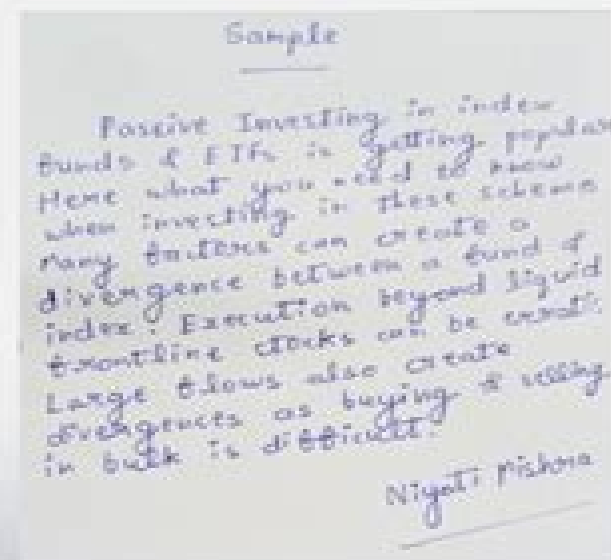 Sample
Passive Investing in index
funds & ETFs is getting popular
Here what you need to know
when investing in these scheme
Many factors can create a
divergence between a fund &
index. Execution beyond liquid
frontline stocks can be erratic
Large flows also create
divergences as buying & selling
in bulk is difficult.
Niyati Mishra